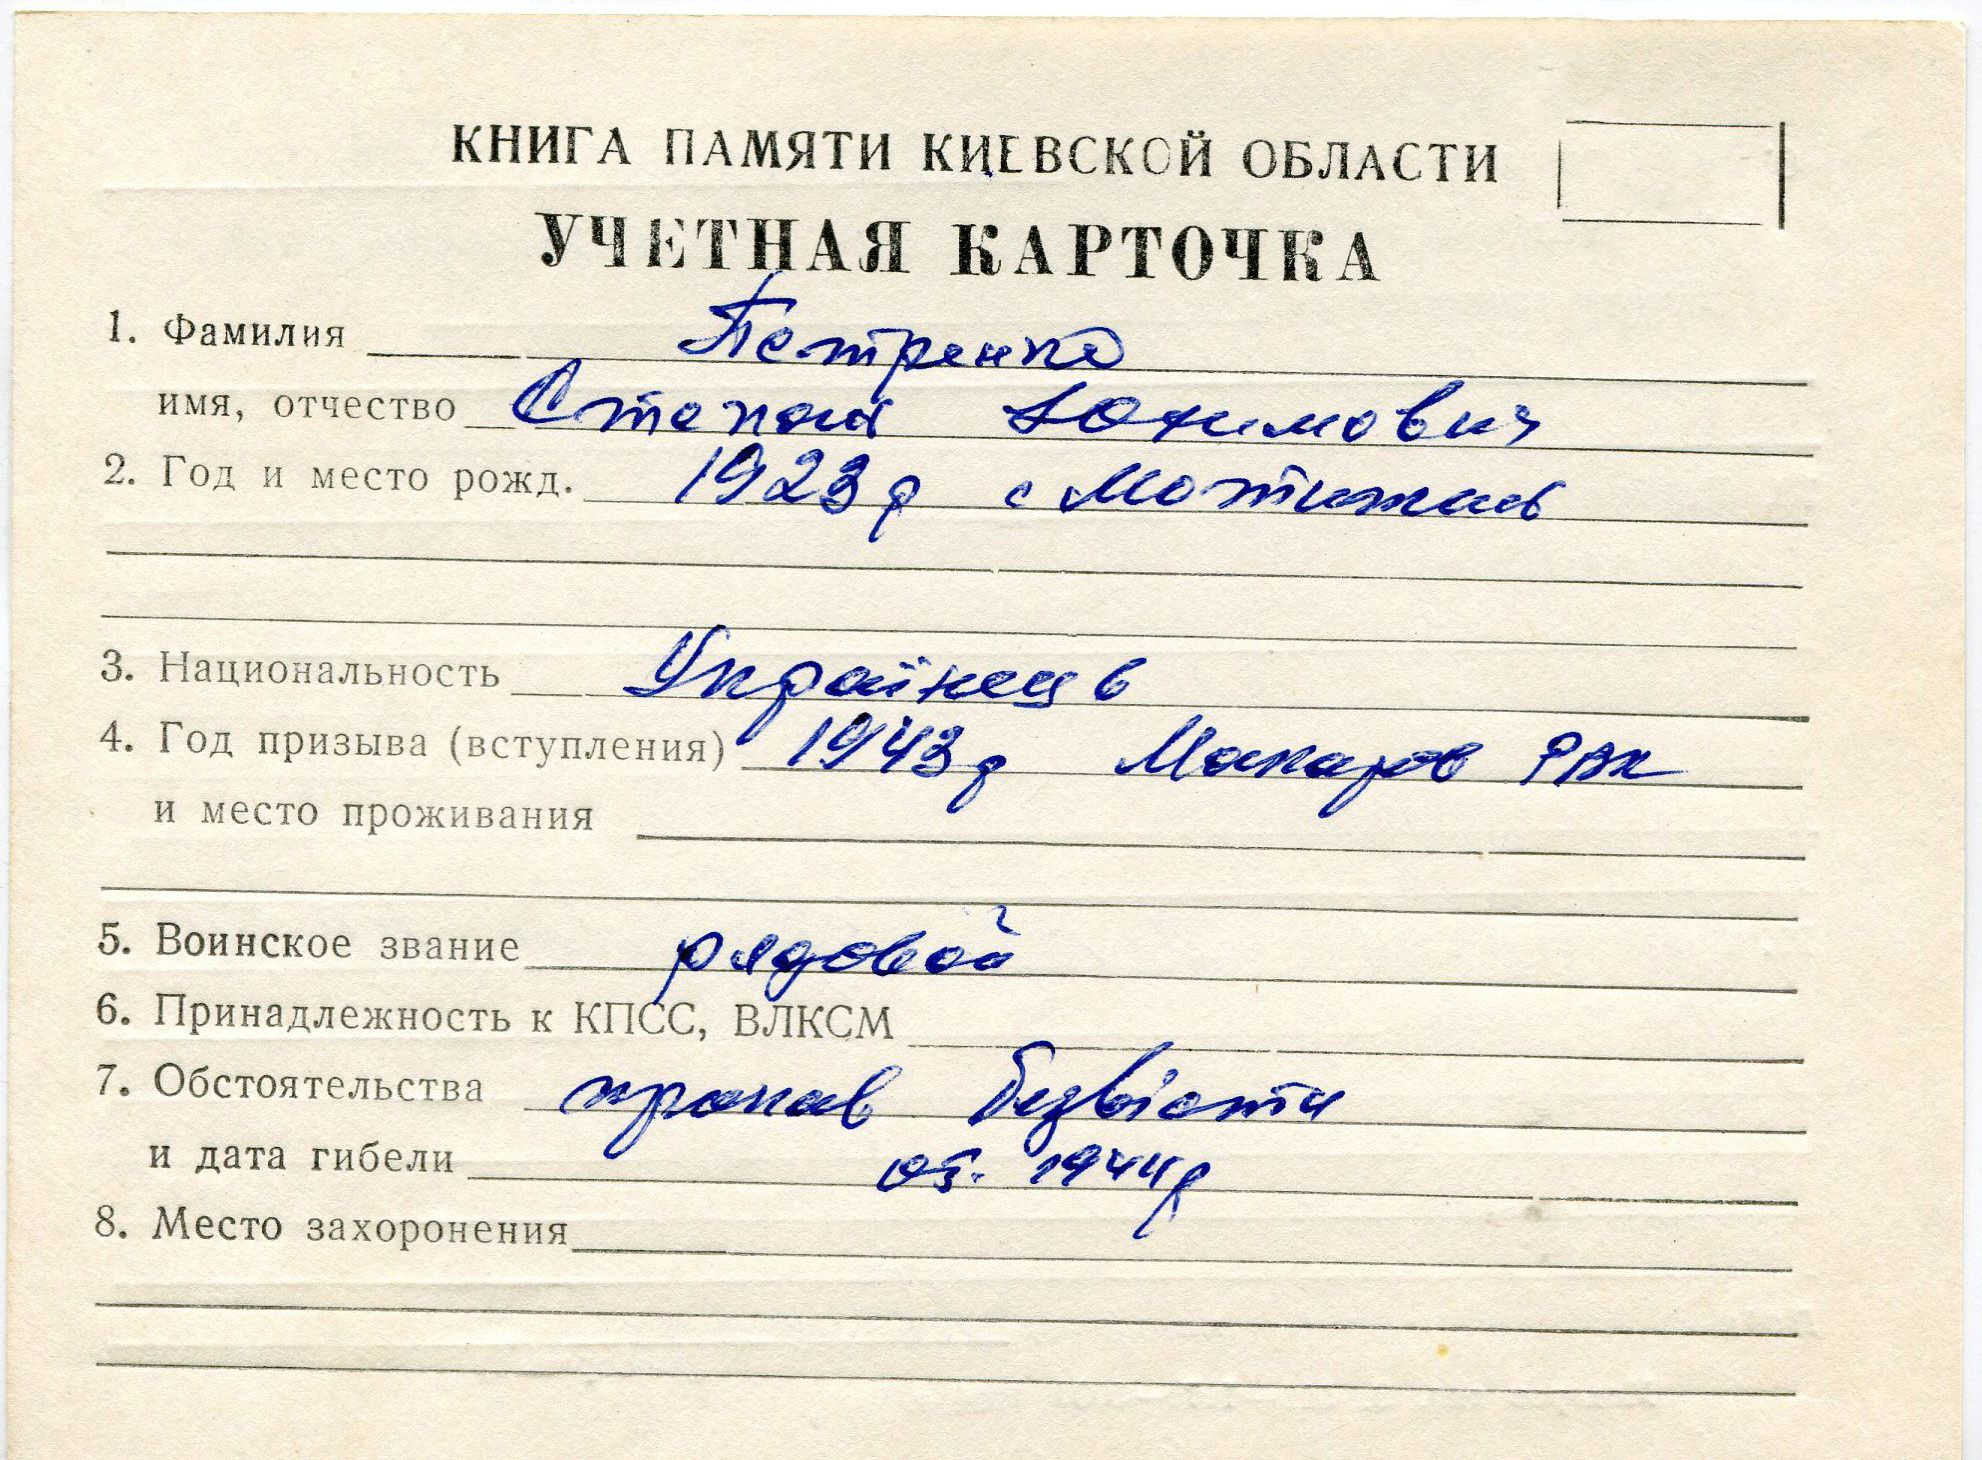 КНИГА ПАМЯТИ КИЕВСКОЙ ОБЛАСТИ
УЧЕТНАЯ КАРТОЧКА
1. Фамилия Петренко
имя, отчество Степан Юхимович
2. Год и место рожд. 1923 р с Мотижин
3. Национальность Українець
4. Год призыва (вступления) 1943 р Макаров РВК
и место проживания
5. Воинское звание рядовой
6. Принадлежность к КПСС, ВЛКСМ
7. Обстоятельства пропав безвісти
и дата гибели 05. 1944р
8. Место захоронения